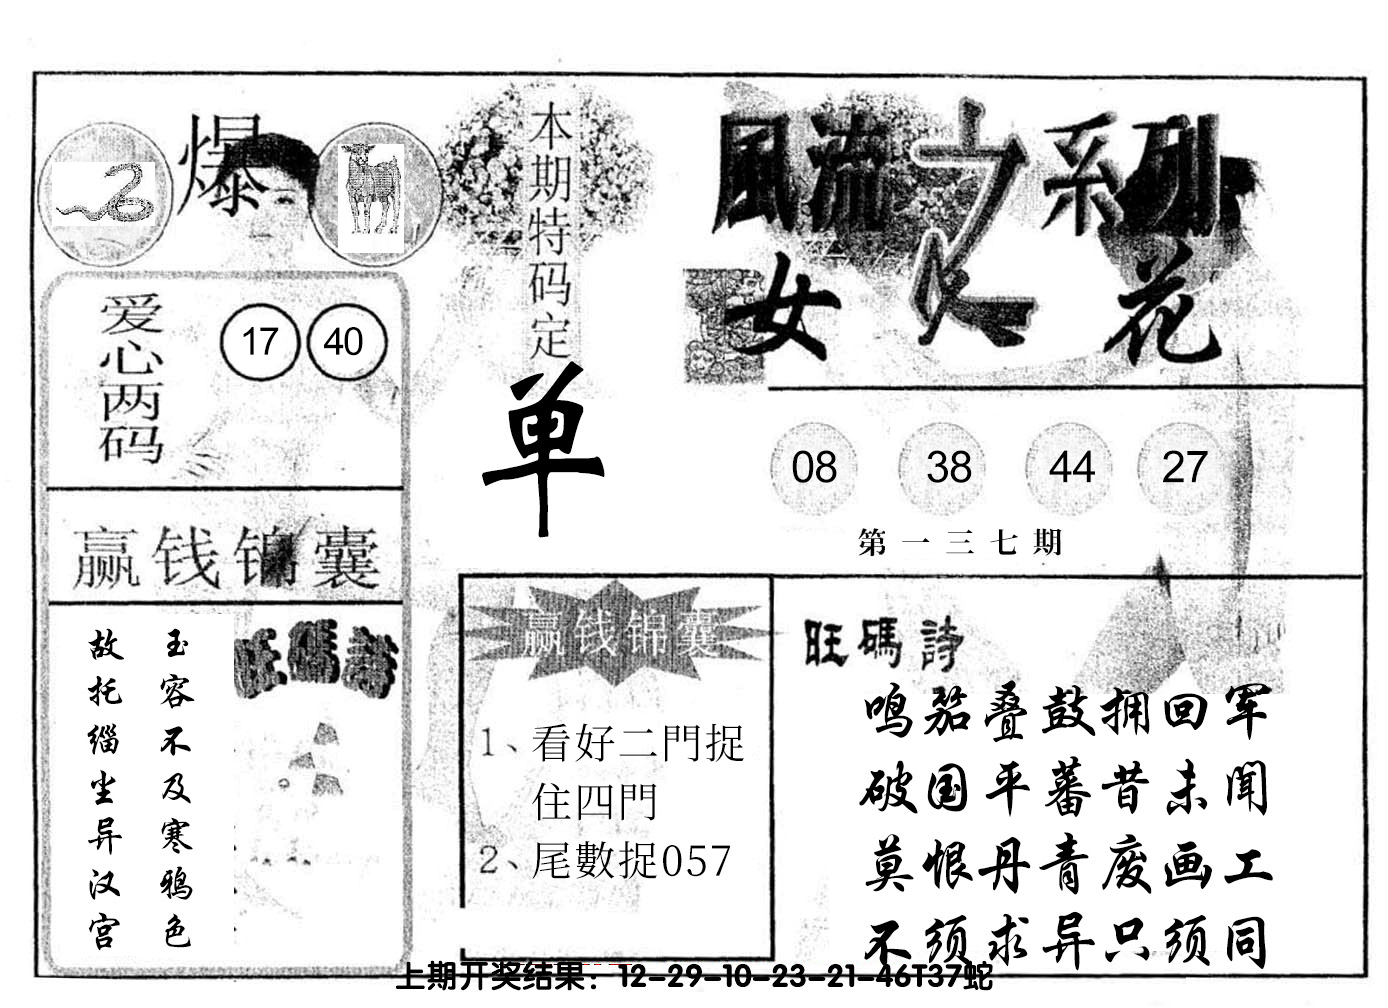 爆
本期特码定
单
風流之系列
女人花
爱心两码
17 40
08 38 44 27
第一三七期
赢钱锦囊
玉容不及寒鸦色
故托缁尘异汉宫
旺碼詩
赢钱锦囊
1、看好二門捉
住四門
2、尾數捉057
旺碼詩
鸣笳叠鼓拥回军
破国平蕃昔未闻
莫恨丹青废画工
不须求异只须同
上期开奖结果：12-29-10-23-21-46T37蛇